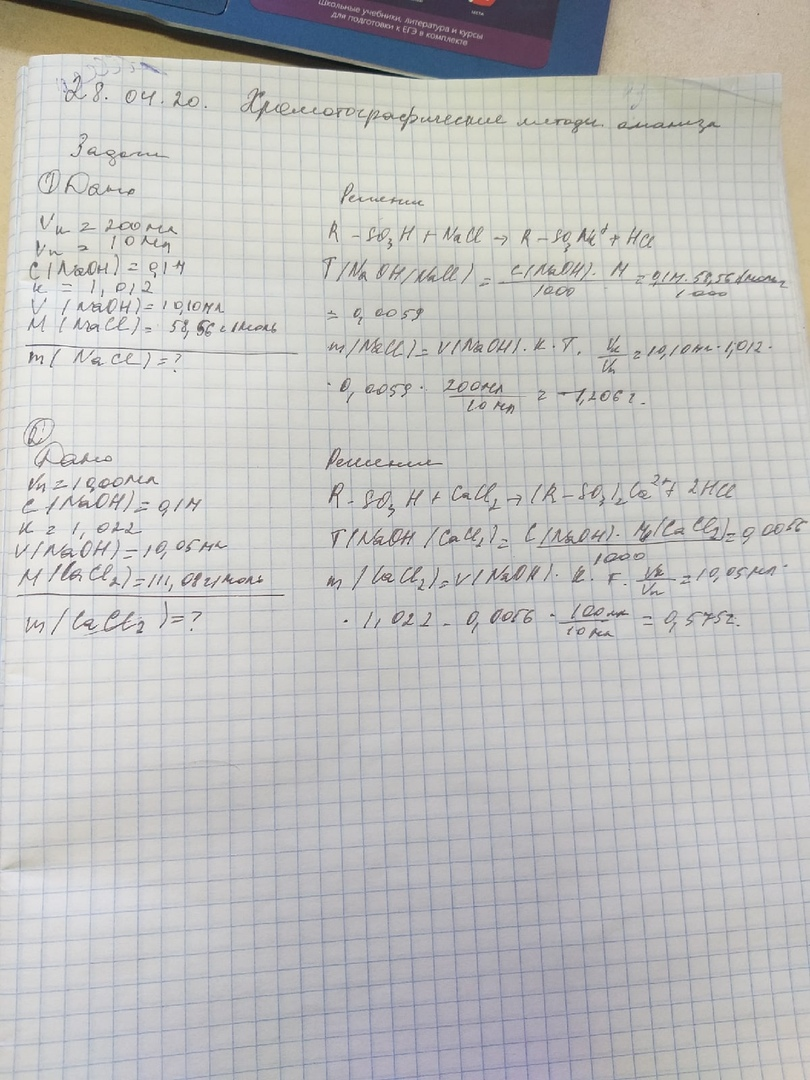 Школьные учебники, литература и курсы
для подготовки к ЕГЭ в комплекте
28.04.20. Хромотографические методы анализа
Задачи
① Дано
Vк = 200мл
Vп = 10мл
C(NaOH) = 0,1М
к = 1,012
V(NaOH) = 10,10мл
M(NaCl) = 58,56 г/моль
m(NaCl) = ?
Решение
R-SO3H + NaCl → R-SO3Na + HCl
T(NaOH/NaCl) = C(NaOH) · M / 1000 = 0,1М · 58,56 г/моль / 1000
= 0,0059
m(NaCl) = V(NaOH) · К · T · Vк/Vп = 10,10мл · 1,012 ·
· 0,0059 · 200мл/10мл = 1,206г.
②
Дано
Vп = 10,00мл
C(NaOH) = 0,1М
к = 1,022
V(NaOH) = 10,05мл
M(CaCl2) = 111,08г/моль
m(CaCl2) = ?
Решение
R-SO3H + CaCl2 → (R-SO3)2Ca2+ + 2HCl
T(NaOH/CaCl2) = C(NaOH) · M(CaCl2) / 1000 = 0,0056
m(CaCl2) = V(NaOH) · К · T · Vк/Vп = 10,05мл ·
· 1,022 · 0,0056 · 100мл/10мл = 0,575г.